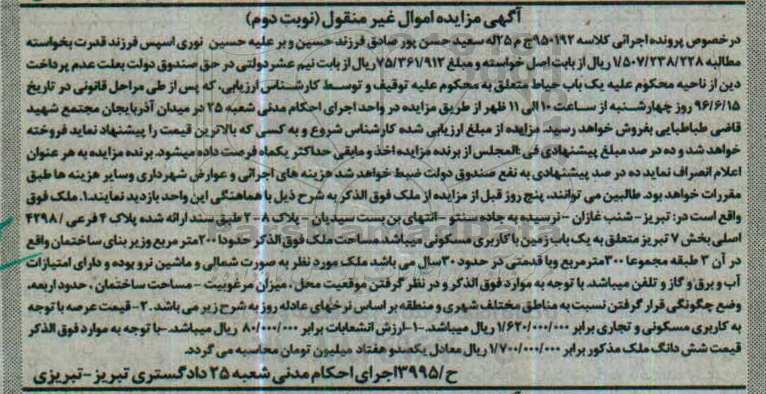 آگهی مزایده اموال غیر منقول (نوبت دوم)
در خصوص پرونده اجرائی کلاسه ۹۵۰۱۹۲ج م ۲۵ له سعید حسن پور صادق فرزند حسین و بر علیه حسین نوری اسپس فرزند قدرت بخواسته
مطالبه ۱/۵۰۷/۲۳۸/۲۲۸ ریال از بابت اصل خواسته و مبلغ ۷۵/۳۶۱/۹۱۲ریال از بابت نیم عشر دولتی در حق صندوق دولت بعلت عدم پرداخت
دین از ناحیه محکوم علیه یک باب حیاط متعلق به محکوم علیه توقیف و توسط کارشناس ارزیابی، که پس از طی مراحل قانونی در تاریخ
۹۶/۶/۱۵ روز چهارشنبه از ساعت ۱۰ الی ۱۱ ظهر از طریق مزایده در واحد اجرای احکام مدنی شعبه ۲۵ در میدان آذربایجان مجتمع شهید
قاضی طباطبایی بفروش خواهد رسید. مزایده از مبلغ ارزیابی شده کارشناس شروع و به کسی که بالاترین قیمت را پیشنهاد نماید فروخته
خواهد شد و ده در صد مبلغ پیشنهادی فی المجلس از برنده مزایده اخذ و مابقی حداکثر یکماه فرصت داده میشود. برنده مزایده به هر عنوان
اعلام انصراف نماید ده در صد پیشنهادی به نفع صندوق دولت ضبط خواهد شد هزینه های اجرائی و عوارض شهرداری وسایر هزینه ها طبق
مقررات خواهد بود. طالبین می توانند، پنج روز قبل از مزایده از ملک فوق الذکر به شرح ذیل با هماهنگی این واحد بازدید نمایند.۱. ملک فوق
واقع است در: تبریز – شنب غازان – نرسیده به جاده سنتو – انتهای بن بست سیدیان – پلاک ۸ – ۲ طبق سند ارائه شده پلاک ۴ فرعی / ۴۲۹۸
اصلی بخش ۷ تبریز متعلق به یک باب زمین با کاربری مسکونی میباشد مساحت ملک فوق الذکر حدودا ۲۰۰متر مربع وزیر بنای ساختمان واقع
در آن ۳ طبقه مجموعا ۳۰۰متر مربع وبا قدمتی در حدود ۳۰سال می باشد ملک مورد نظر به صورت شمالی و ماشین نرو بوده و دارای امتیازات
آب و برق و گاز و تلفن میباشد. با توجه به موارد فوق الذکر و در نظر گرفتن موقعیت محل، میزان مرغوبیت – مساحت ساختمان، حدود اربعه،
وضع چگونگی قرار گرفتن نسبت به مناطق مختلف شهری و منطقه بر اساس نرخهای عادله روز به شرح زیر می باشد. ۲- قیمت عرصه با توجه
به کاربری مسکونی و تجاری برابر ۱/۶۲۰/۰۰۰/۰۰۰ ریال میباشد.-۱-ارزش انشعابات برابر ۸۰/۰۰۰/۰۰۰ ریال میباشد.-با توجه به موارد فوق الذکر
قیمت شش دانگ ملک مذکور برابر ۱/۷۰۰/۰۰۰/۰۰۰ ریال معادل یکصدو هفتاد میلیون تومان محاسبه می گردد.
ح/۳۹۹۵اجرای احکام مدنی شعبه ۲۵ دادگستری تبریز –تبریزی